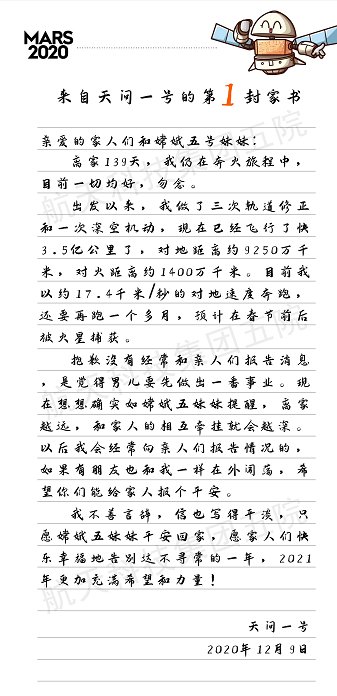 MARS
2020
来自天问一号的第1封家书
亲爱的家人们和嫦娥五号妹妹:
离家139天，我仍在奔火旅程中，
目前一切均好，勿念。
出发以来，我做了三次轨道修正
和一次深空机动，现在已经飞行了快
3.5亿公里了，对地距离约9250万千
米，对火距离约1400万千米。目前我
以约17.4千米/秒的对地速度奔跑，
还要再跑一个多月，预计在春节前后
被火星捕获。
抱歉没有经常和亲人们报告消息
，是觉得男儿要先做出一番事业。现
在想想确实如嫦娥五妹妹提醒，离家
越远，和家人的相互牵挂就会越深。
以后我会经常向亲人们报告情况的，
如果有朋友也和我一样在外闯荡，希
望你们能给家人报个平安。
我不善言辞，信也写得平淡，只
愿嫦娥五妹妹平安回家，愿家人们快
乐幸福地告别这不寻常的一年，2021
年更加充满希望和力量!
天问一号
2020年12月9日
航天科技集团五院
航天科技集团五院
航天科技集团五院